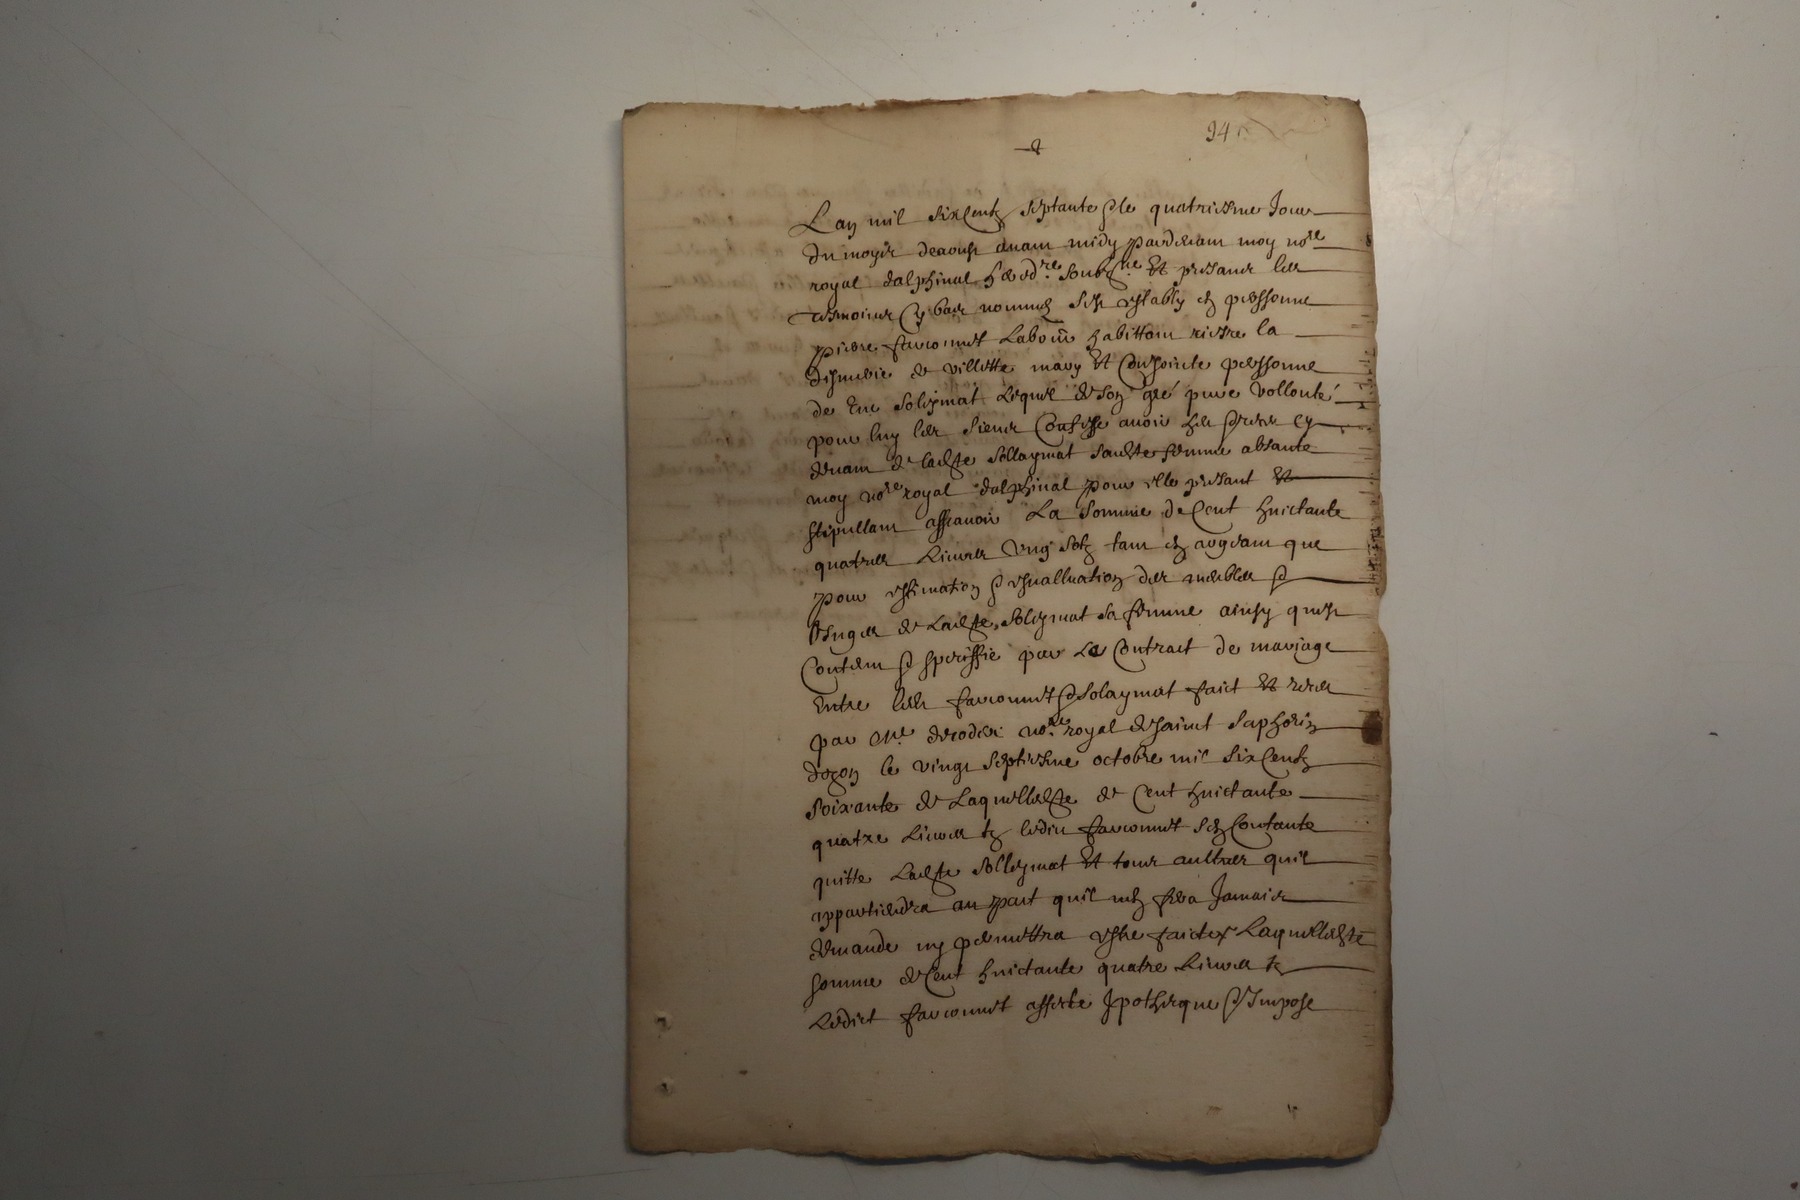 94
L an mil six Centz septante & le quatriesme Jour
du moys deaoust avant midy pardevant moy no.re
royal dalphinal her.re soubz.ne Et presans les
tesmoins Cy bas nommes sest estably en personne
pierre favionnet Labour habittant riere la
de villette mary Et Conjointe perssonne
de Solleymat Lequel de son gré pure vollonté
pour luy les siens Confesse avoir heu cy
devant de ladite Solleymat sadite femme absante
moy no.re royal dalphinal pour elle presant Et
stipullant assavoir La somme de Cent huictante
quatres Livres Ung solz tant en argeant que
pour estimation & esvalluation des meubles &
linges de Ladite Solleymat sa femme ainsy quest
Contenu & speciffié par Le Contract de mariage
Entre les favionnet & Solaymat faict Et receu
par Me derodes no.re royal de sainct saphorin
dozon le vingt septiesme octobre mil six Centz
soixante de Laquelle dite de Cent huictante
quatre Livres ts ledict favionnet sen Contante
quitte Ladite Solleymat Et tous aultres quil
appartiendra au part quil nen fera Jamais
demande ny permettra estre faicte Laquelle dite
somme de Cent huictante quatre Livres ts
Ledict favionnet affecte Ipotheque & Impose